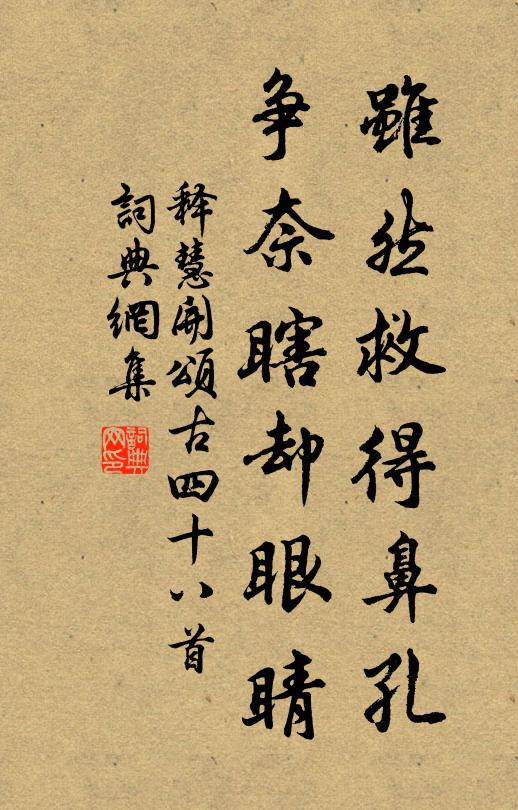 雖然救得鼻孔
争奈瞎却眼睛
释慧開頌古四十八首
詞典網集
詞典
网印